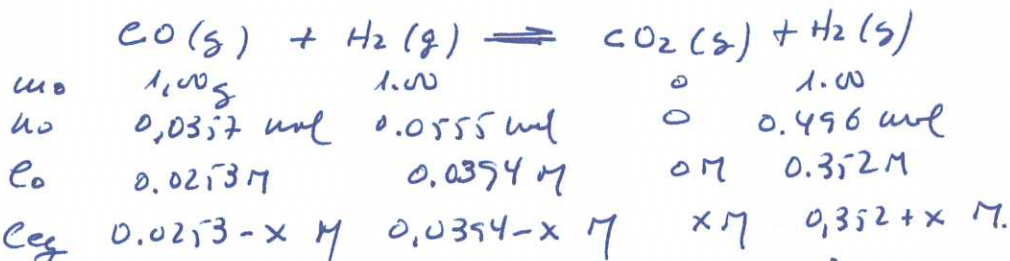 CO(g) + H2(g) ⇌ CO2(g) + H2(g)
m0 1,00g 1.00 0 1.00
n0 0,0357 mol 0.0555 mol 0 0.496 mol
C0 0.0253M 0.0394 M 0M 0.352M
Ceq 0.0253-x M 0,0394-x M xM 0,352+x M.